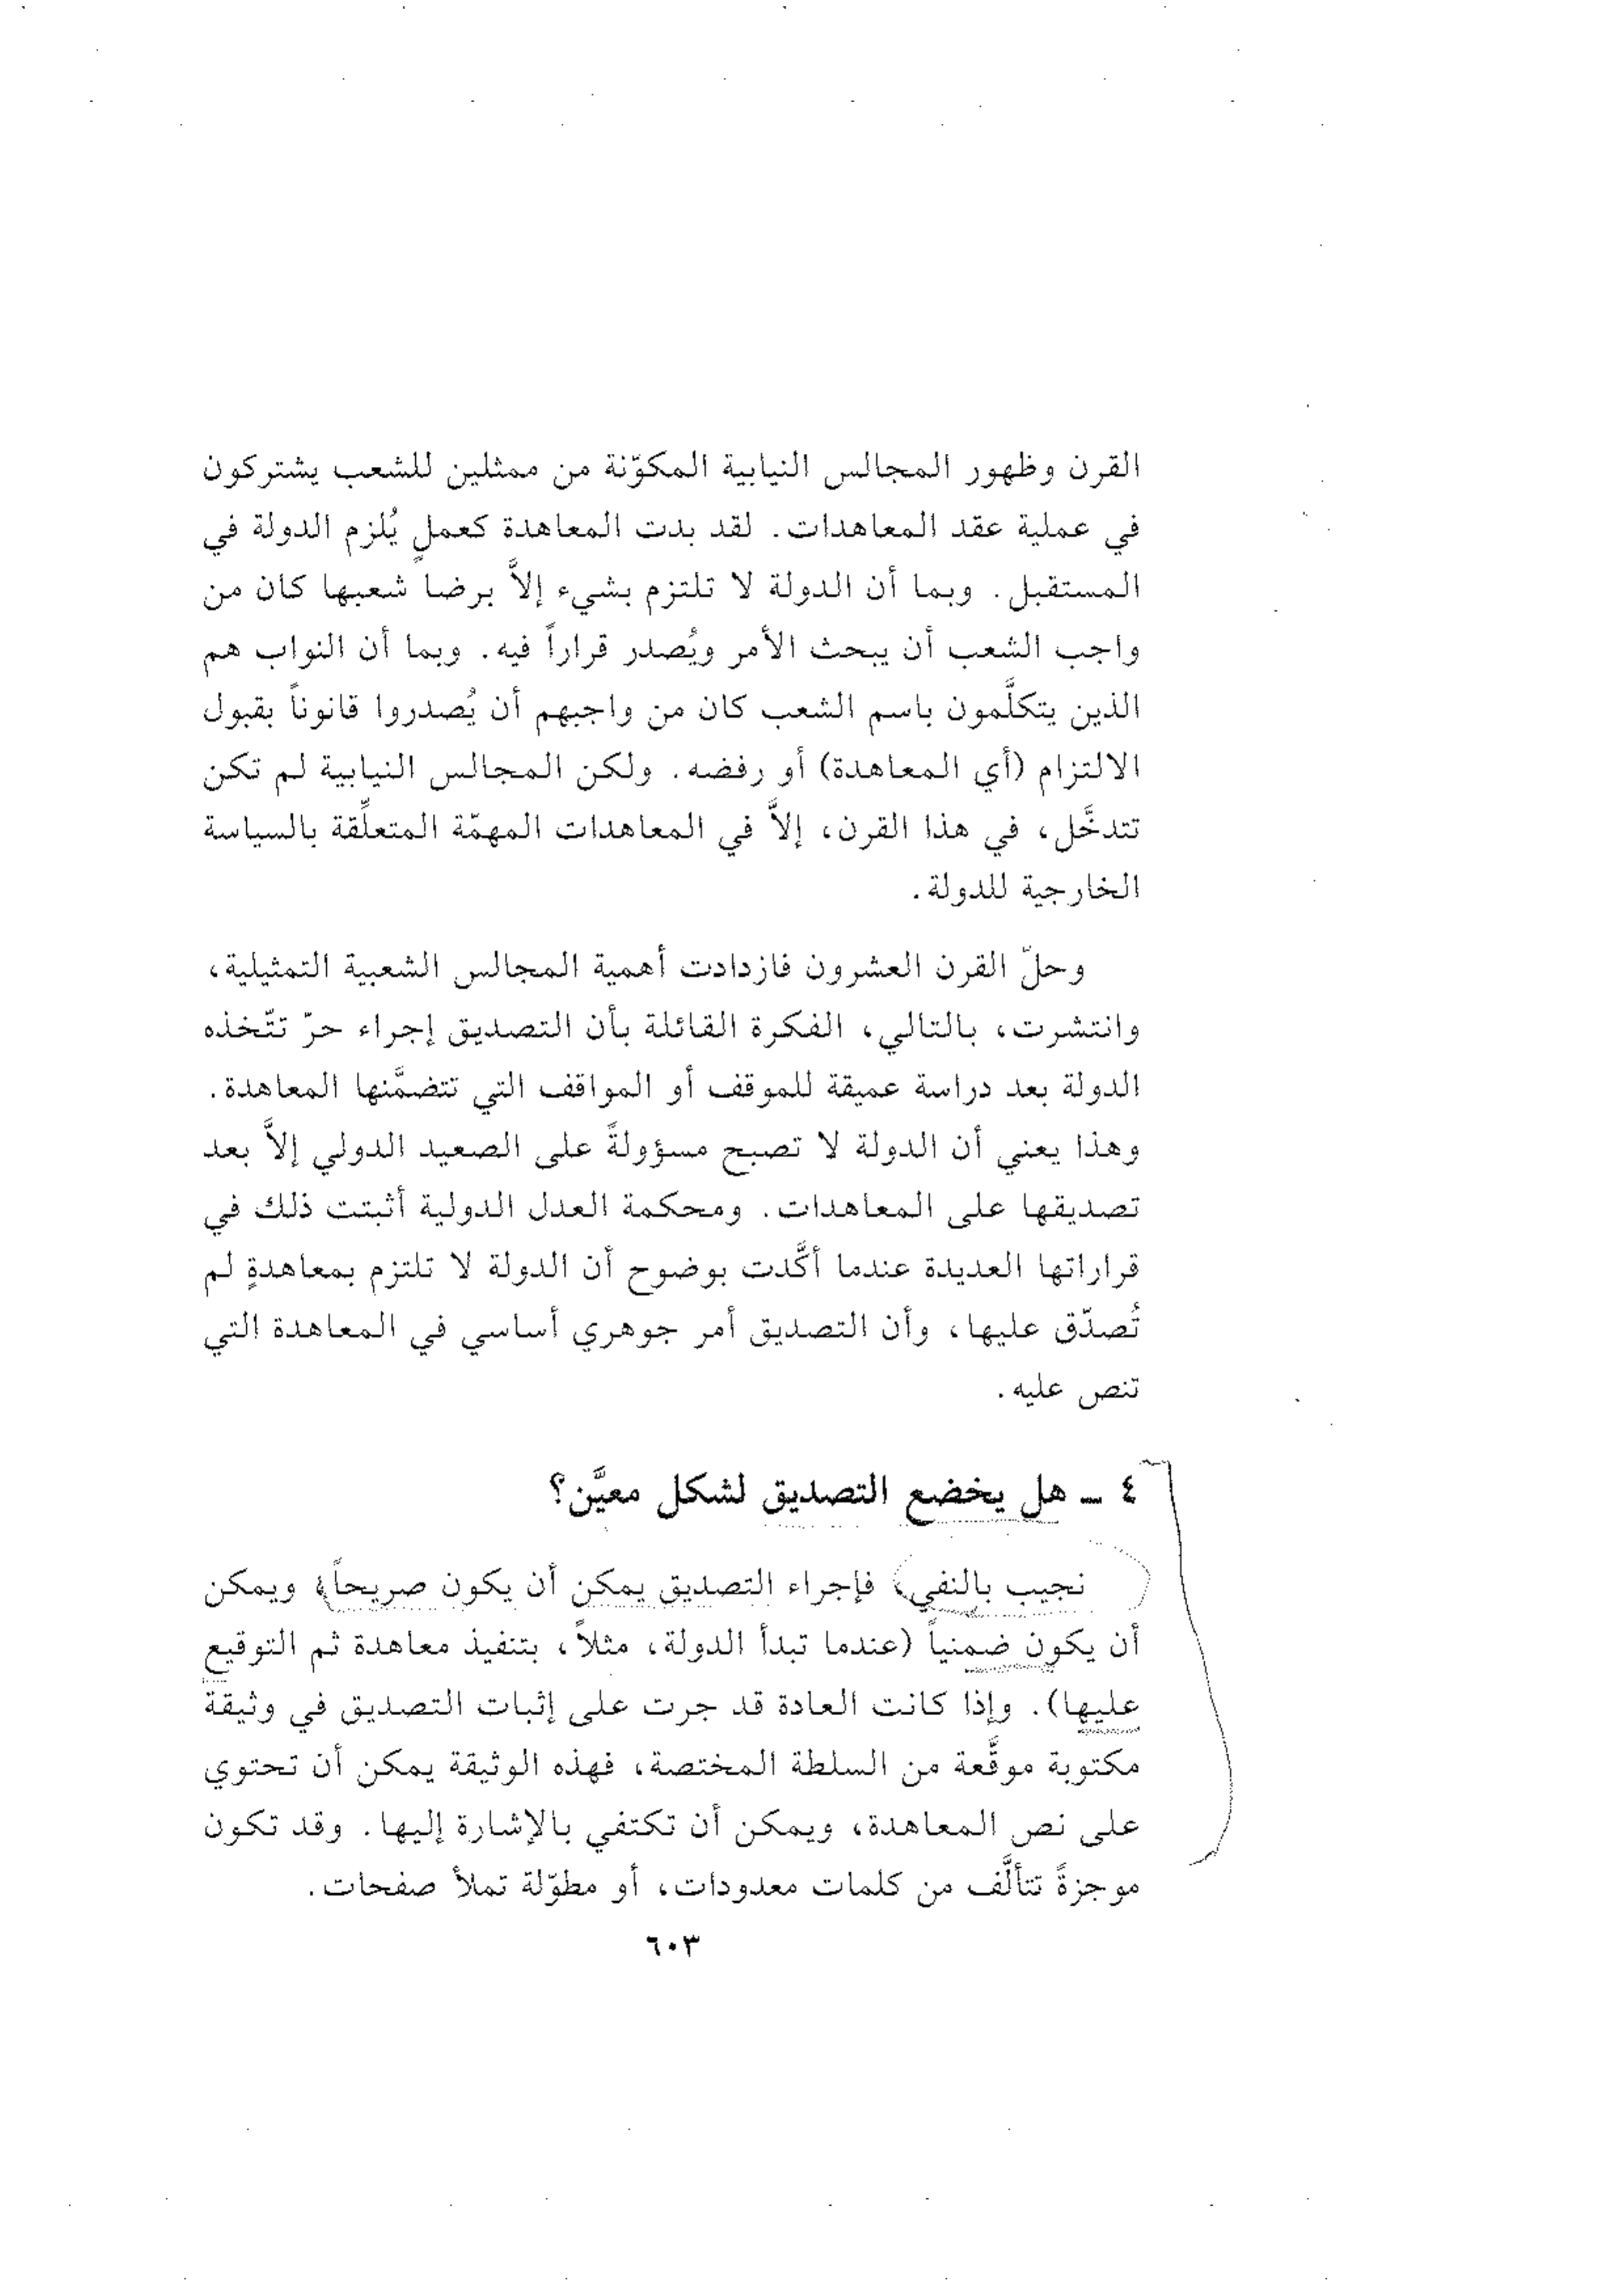 القرن وظهور المجالس النيابية المكوّنة من ممثلين للشعب يشتركون
في عملية عقد المعاهدات. لقد بدت المعاهدة كعملٍ يُلزم الدولة في
المستقبل. وبما أن الدولة لا تلتزم بشيء إلاَّ برضا شعبها كان من
واجب الشعب أن يبحث الأمر ويُصدر قراراً فيه. وبما أن النواب هم
الذين يتكلَّمون باسم الشعب كان من واجبهم أن يُصدروا قانوناً بقبول
الالتزام (أي المعاهدة) أو رفضه. ولكن المجالس النيابية لم تكن
تتدخَّل، في هذا القرن، إلاَّ في المعاهدات المهمّة المتعلِّقة بالسياسة
الخارجية للدولة.
وحلّ القرن العشرون فازدادت أهمية المجالس الشعبية التمثيلية،
وانتشرت، بالتالي، الفكرة القائلة بأن التصديق إجراء حرّ تتّخذه
الدولة بعد دراسة عميقة للموقف أو المواقف التي تتضمَّنها المعاهدة.
وهذا يعني أن الدولة لا تصبح مسؤولةً على الصعيد الدولي إلاَّ بعد
تصديقها على المعاهدات. ومحكمة العدل الدولية أثبتت ذلك في
قراراتها العديدة عندما أكَّدت بوضوح أن الدولة لا تلتزم بمعاهدةٍ لم
تُصدّق عليها، وأن التصديق أمر جوهري أساسي في المعاهدة التي
تنص عليه.
٤ ـ هل يخضع التصديق لشكل معيَّن؟
نجيب بالنفي، فإجراء التصديق يمكن أن يكون صريحاً، ويمكن
أن يكون ضمنياً (عندما تبدأ الدولة، مثلاً، بتنفيذ معاهدة ثم التوقيع
عليها). وإذا كانت العادة قد جرت على إثبات التصديق في وثيقة
مكتوبة موقَّعة من السلطة المختصة، فهذه الوثيقة يمكن أن تحتوي
على نص المعاهدة، ويمكن أن تكتفي بالإشارة إليها. وقد تكون
موجزةً تتألَّف من كلمات معدودات، أو مطوّلة تملأ صفحات.
٦٠٣